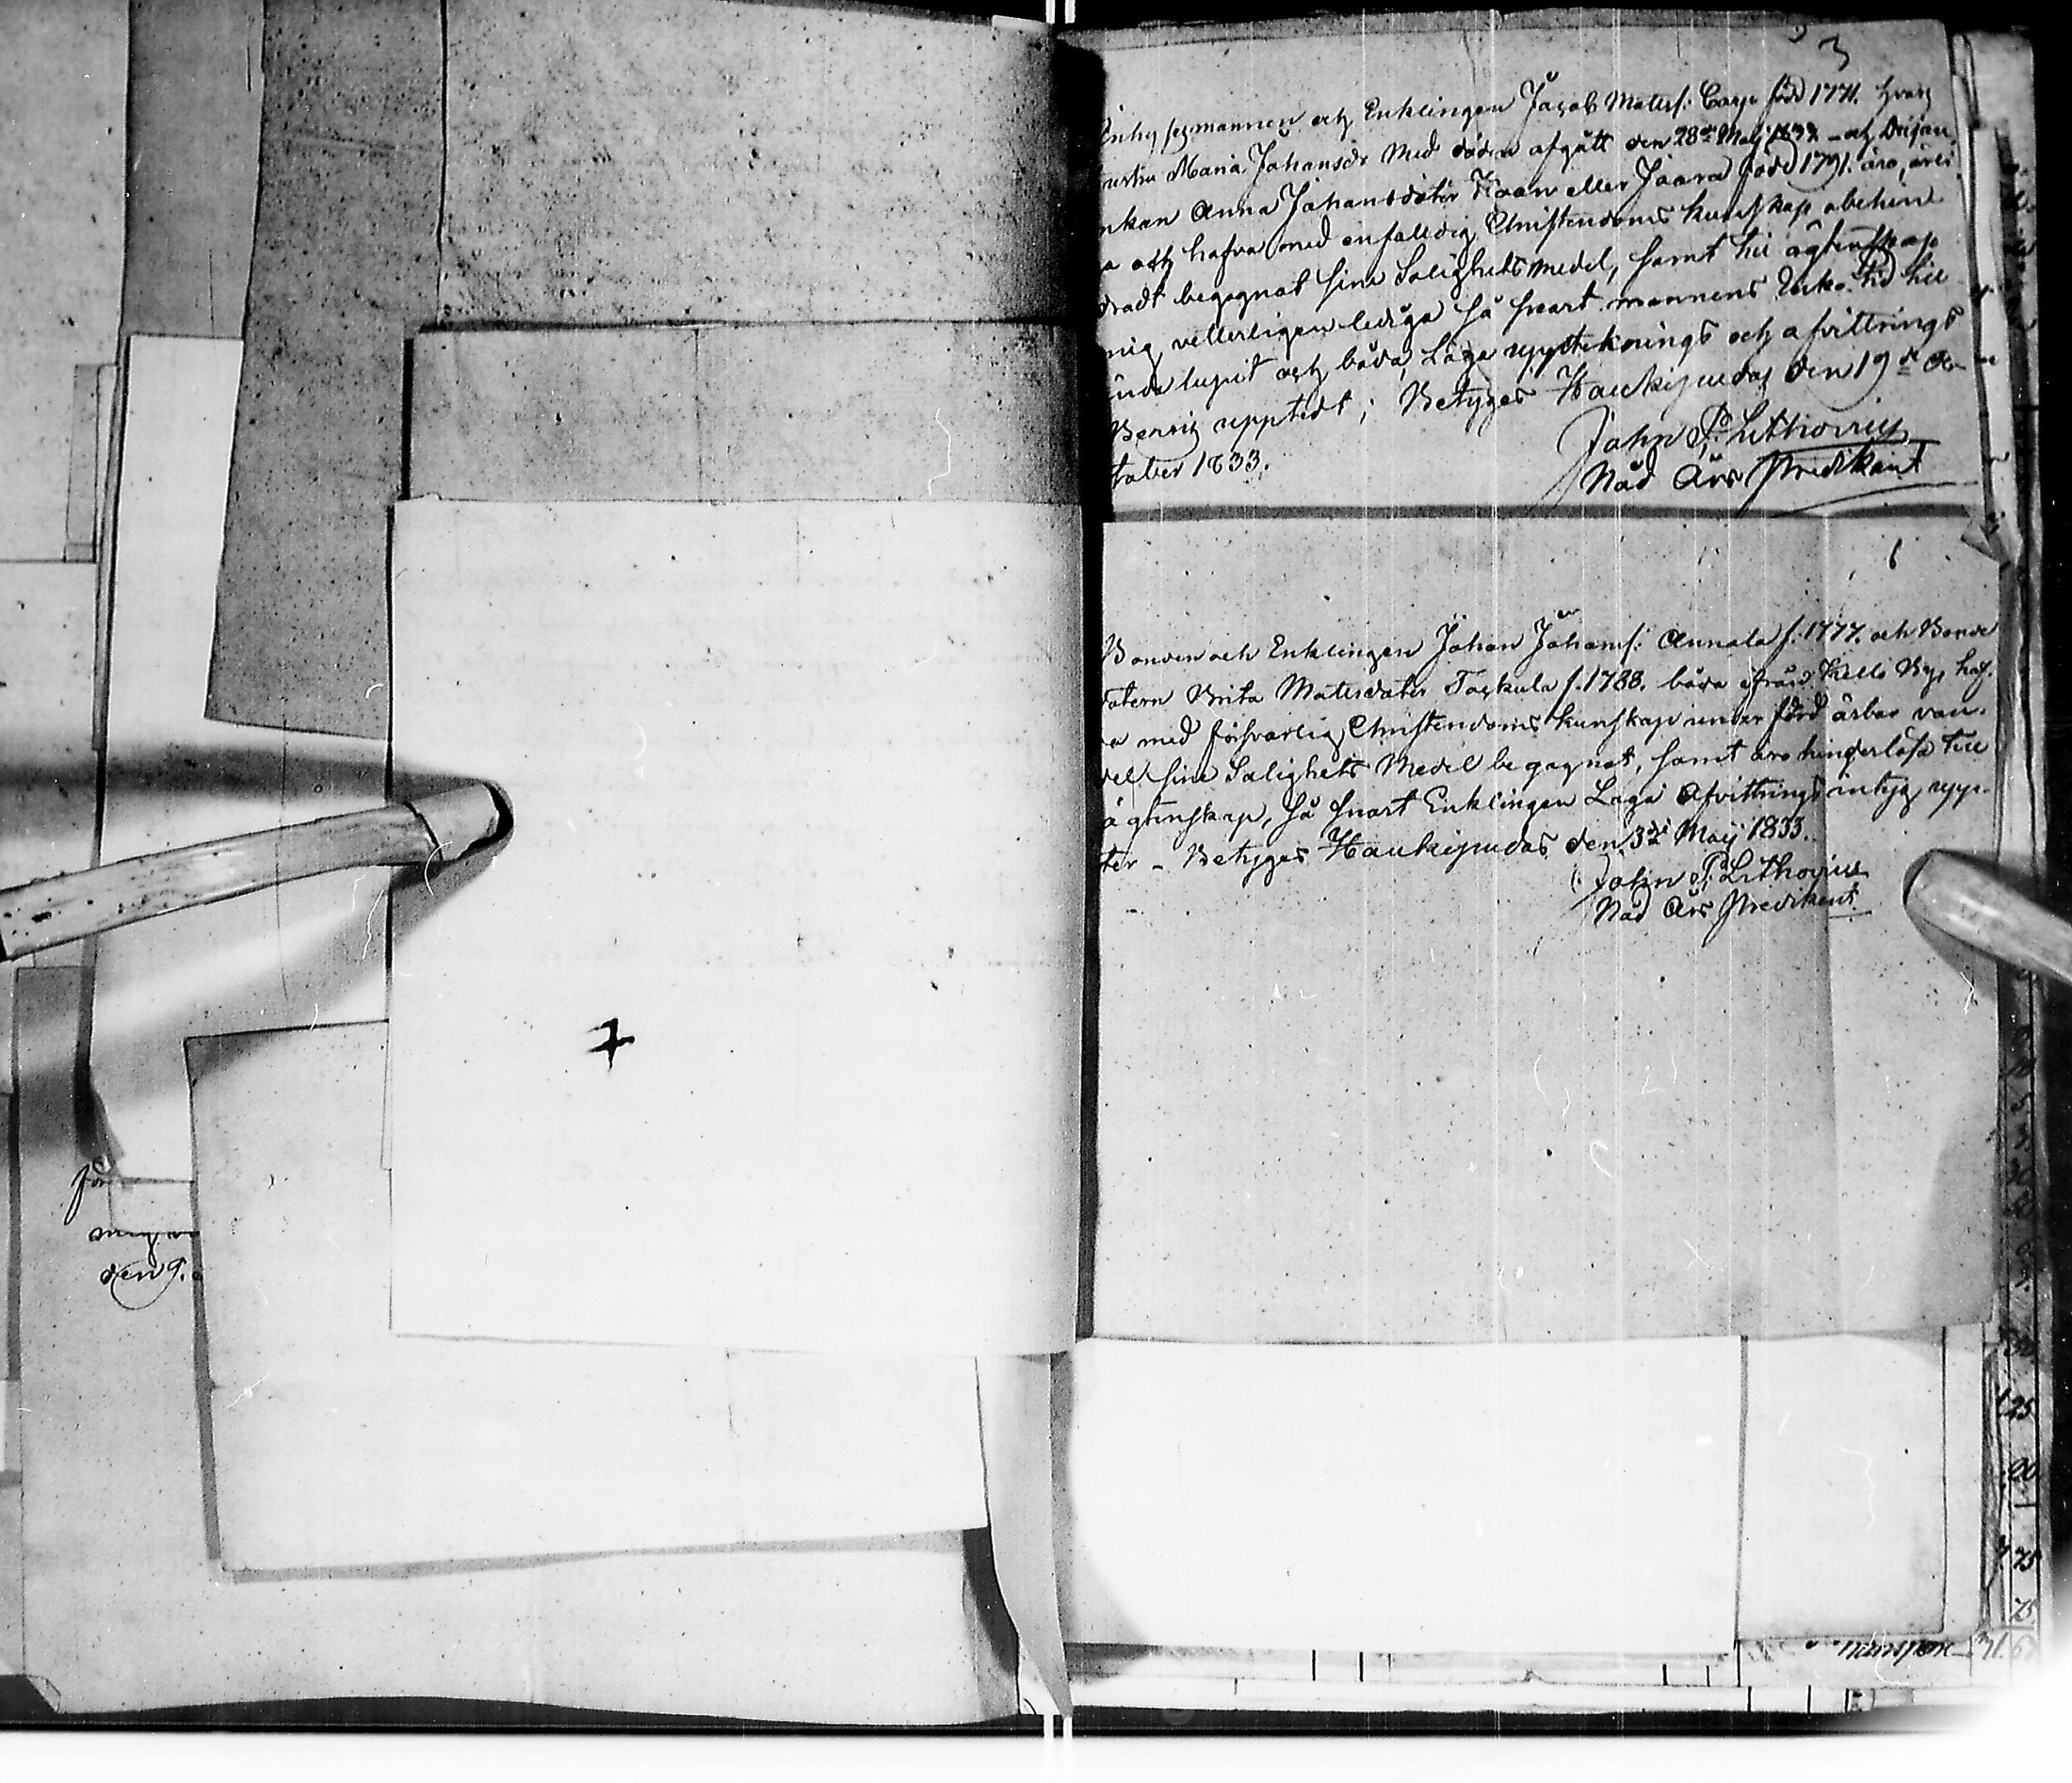 3
Inhysesmannen och Enklingen Jacob Matss: Carp född 1771. hvars
hustru Maria Johansdr med döden afgått den 28de Maij 1832 – och Drifan
nkan Anna Johansdoter Kaan eller Jaara född 1791. äro, ärli
a och hafva med enfalldig Christendoms kunskap obehin
dradt begagnat sine Salighets medel, samt till ägtenskap
mig vetterligen lediga så snart mannens Enko tid till
ända lupit och båda Laga upptecknings och afvittrings
Bevis upptedt; Betyges Haukipudas den 19de Oc
tober 1833.
John P. Lithovius
Nåd Års Predikant
6
Bonden och Enklingen Johan Johanss: Annala f. 1777. och Bonde
dotern Brita Matsdoter Taskula f. 1788. båda ifrån Kello By, haf.
va med försvarlig Christendoms kunskap under förd ärbar van.
del sine Salighets Medel begagnat, samt äro hinderlösa till
ägtenskap, så snart Enklingen Laga Afvittrings intyg upp.
ter – Betyges Haukipudas den 3de Maij 1833.
John P. Lithovius
Nåd Års Predikant
7
för
mig
den 9.
125
00
75
75
Transport